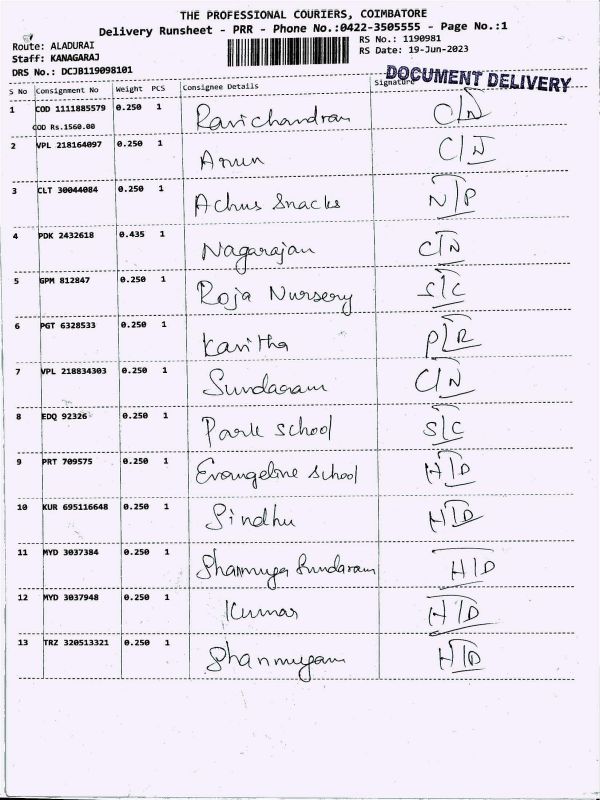 THE PROFESSIONAL COURIERS, COIMBATORE
Delivery Runsheet - PRR - Phone No.:0422-3505555 - Page No.:1
Route: ALADURAI
Staff: KANAGARAJ
DRS No.: DCJB119098101
RS No.: 1190981
RS Date: 19-Jun-2023
DOCUMENT DELIVERY
S No Consignment No Weight PCS Consignee Details Signature
1 COD 1111885579 0.250 1 Ravichandran C/N
COD Rs.1560.00
2 VPL 218164097 0.250 1 Arun C/N
3 CLT 30044084 0.250 1 Achus Snacks N/P
4 PDK 2432618 0.435 1 Nagarajan C/N
5 GPM 812847 0.250 1 Roja Nursery S/C
6 PGT 6328533 0.250 1 Kavitha P/R
7 VPL 218834303 0.250 1 Sundaram C/N
8 EDQ 92326 0.250 1 Park School S/C
9 PRT 709575 0.250 1 Evangeline School H/D
10 KUR 695116648 0.250 1 Sindhu H/D
11 MYD 3037384 0.250 1 Shanmuga Sundaram H/D
12 MYD 3037948 0.250 1 Kumar H/D
13 TRZ 320513321 0.250 1 Shanmugam H/D